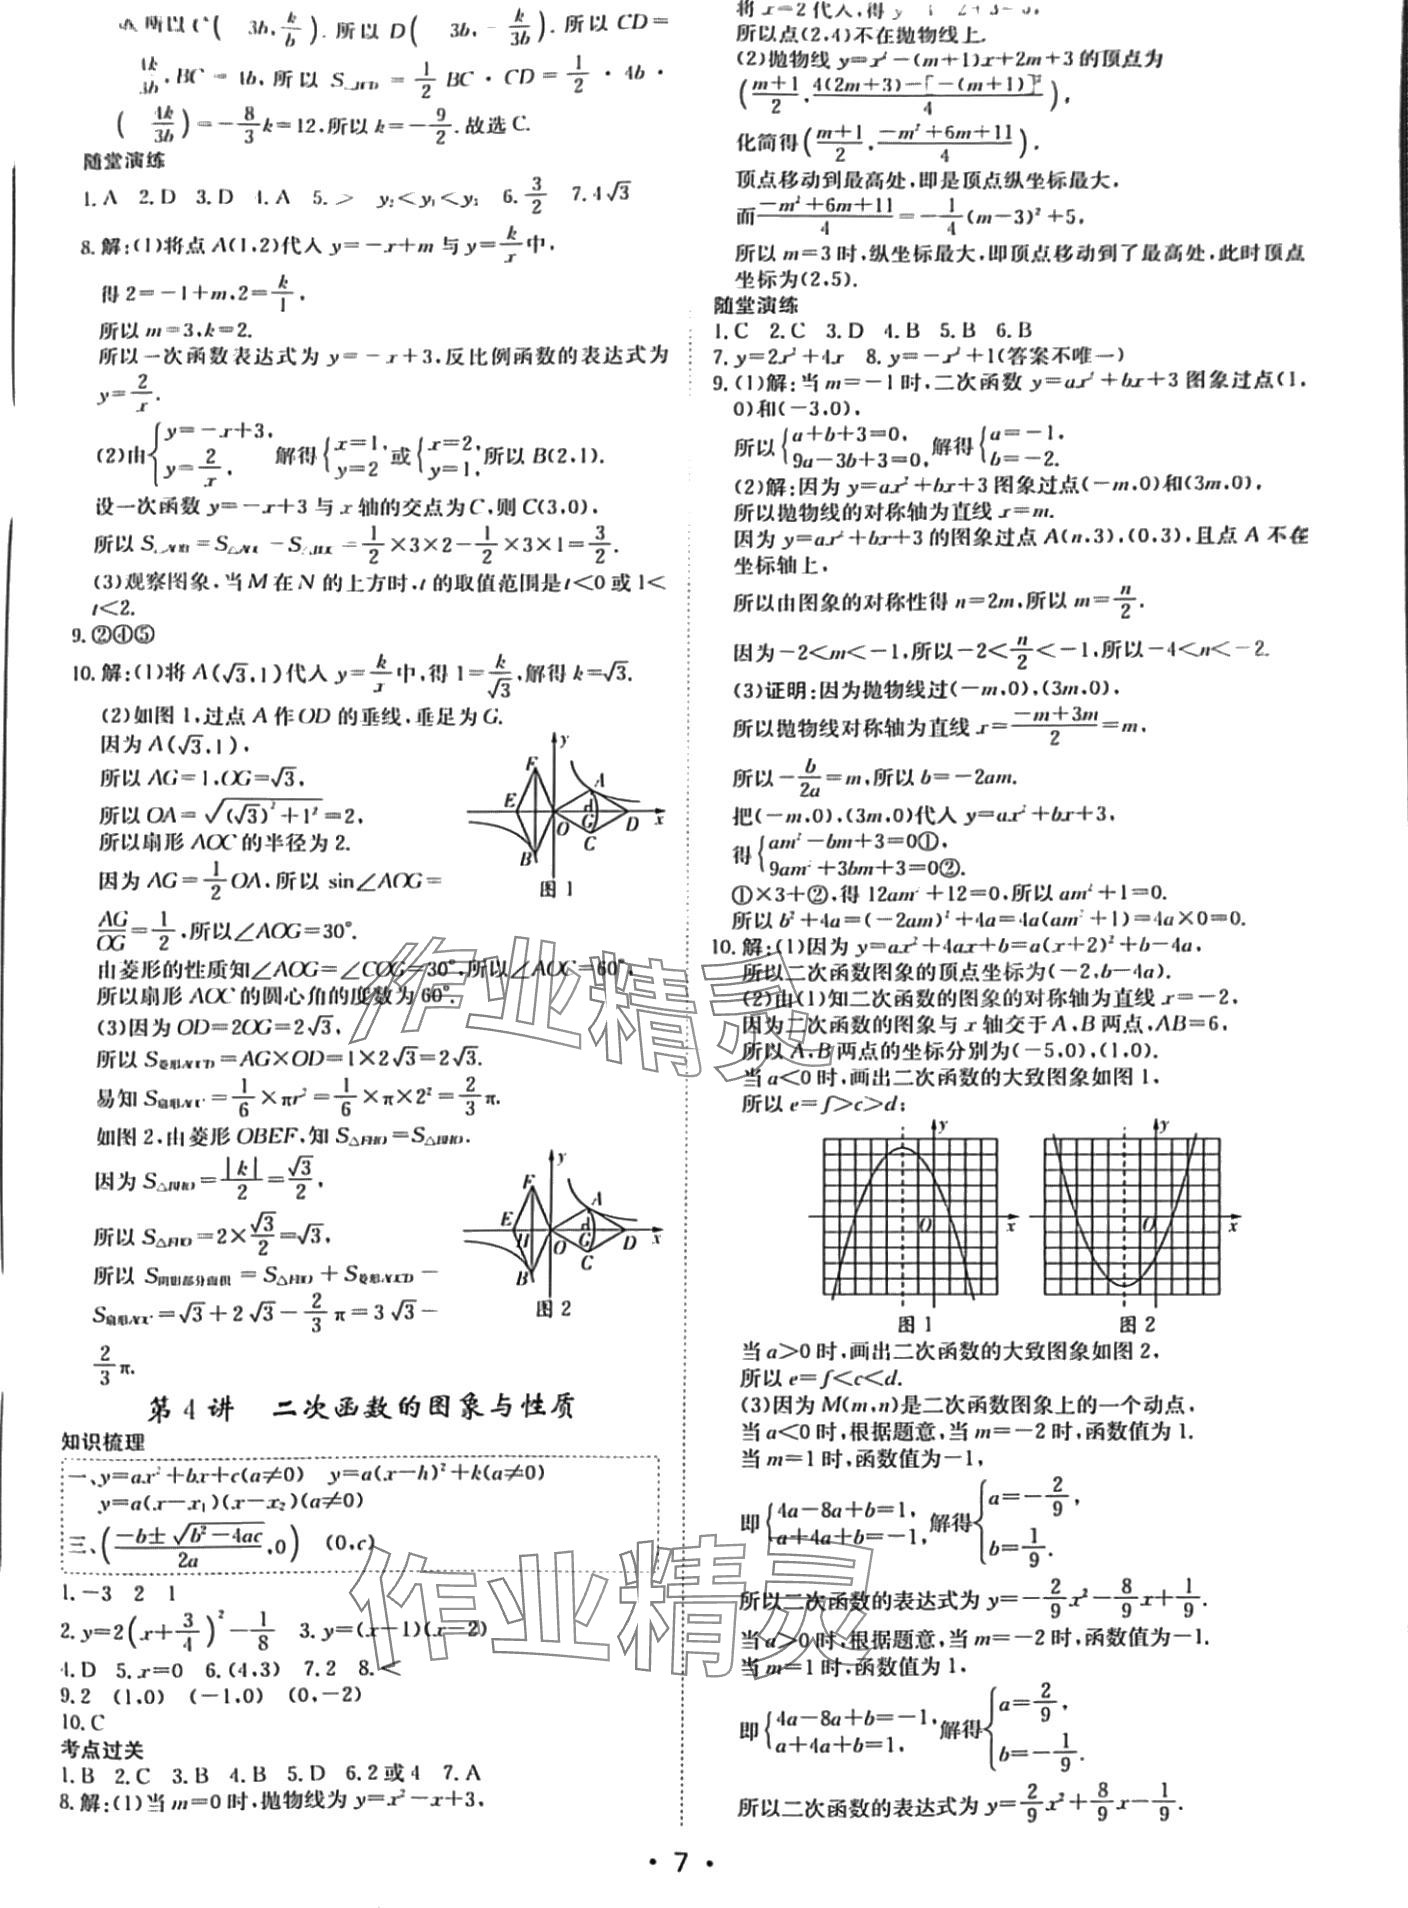 所以C(3b,k/b).所以D(3b,-k/3b).所以CD=
4k/3b,BC=4b,所以S△BCD=1/2BC·CD=1/2·4b·
(4k/3b)=-8/3k=12,所以k=-9/2.故选C.
随堂演练
1.A 2.D 3.D 4.A 5.> y₂<y₁<y₃ 6.3/2 7.4√3
8.解:(1)将点A(1,2)代入y=-x+m与y=k/x中,
得2=-1+m,2=k/1,
所以m=3,k=2.
所以一次函数表达式为y=-x+3,反比例函数的表达式为
y=2/x.
(2)由{y=-x+3, y=2/x, 解得{x=1, y=2 或{x=2, y=1, 所以B(2,1).
设一次函数y=-x+3与x轴的交点为C,则C(3,0),
所以S△AOB=S△AOC-S△BOC=1/2×3×2-1/2×3×1=3/2.
(3)观察图象,当M在N的上方时,t的取值范围是t<0或1<
t<2.
9.②④⑤
10.解:(1)将A(√3,1)代入y=k/x中,得1=k/√3,解得k=√3.
(2)如图1,过点A作OD的垂线,垂足为G.
因为A(√3,1),
所以AG=1,OG=√3,
所以OA=√((√3)²+1²)=2,
所以扇形AOC的半径为2.
因为AG=1/2OA,所以sin∠AOG=
AG/OG=1/2,所以∠AOG=30°.
F y A E d O G D x C B
图1
由菱形的性质知∠AOG=∠COG=30°,所以∠AOC=60°,
所以扇形AOC的圆心角的度数为60°.
(3)因为OD=2OG=2√3,
所以S菱形AOCD=AG×OD=1×2√3=2√3.
易知S扇形AOC=1/6×πr²=1/6×π×2²=2/3π.
如图2,由菱形OBEF,知S△FHO=S△BHO.
因为S△BHO=|k|/2=√3/2,
所以S△FBO=2×√3/2=√3,
所以S阴影部分面积=S△FBO+S菱形AOCD-
S扇形AOC=√3+2√3-2/3π=3√3-
2/3π.
F y A E H d O G D x C B
图2
第4讲 二次函数的图象与性质
知识梳理
一、y=ax²+bx+c(a≠0) y=a(x-h)²+k(a≠0)
y=a(x-x₁)(x-x₂)(a≠0)
三、((-b±√(b²-4ac))/2a,0) (0,c)
1.-3 2 1
2.y=2(x+3/4)²-1/8 3.y=(x-1)(x-2)
4.D 5.x=0 6.(4,3) 7.2 8.<
9.2 (1,0) (-1,0) (0,-2)
10.C
考点过关
1.B 2.C 3.B 4.B 5.D 6.2或4 7.A
8.解:(1)当m=0时,抛物线为y=x²-x+3,
将x=2代入,得y
所以点(2,4)不在抛物线上.
(2)抛物线y=x²-(m+1)x+2m+3的顶点为
((m+1)/2,(4(2m+3)-[-(m+1)]²)/4),
化简得((m+1)/2,(-m²+6m+11)/4).
顶点移动到最高处,即是顶点纵坐标最大,
而(-m²+6m+11)/4=-1/4(m-3)²+5,
所以m=3时,纵坐标最大,即顶点移动到了最高处,此时顶点
坐标为(2,5).
随堂演练
1.C 2.C 3.D 4.B 5.B 6.B
7.y=2x²+4x 8.y=-x²+1(答案不唯一)
9.(1)解:当m=-1时,二次函数y=ax²+bx+3图象过点(1,
0)和(-3,0),
所以{a+b+3=0, 9a-3b+3=0, 解得{a=-1, b=-2.
(2)解:因为y=ax²+bx+3图象过点(-m,0)和(3m,0),
所以抛物线的对称轴为直线x=m.
因为y=ax²+bx+3的图象过点A(n,3),(0,3),且点A不在
坐标轴上,
所以由图象的对称性得n=2m,所以m=n/2.
因为-2<m<-1,所以-2<n/2<-1,所以-4<n<-2.
(3)证明:因为抛物线过(-m,0),(3m,0),
所以抛物线对称轴为直线x=(-m+3m)/2=m,
所以-b/2a=m,所以b=-2am.
把(-m,0),(3m,0)代入y=ax²+bx+3,
得{am²-bm+3=0①, 9am²+3bm+3=0②.
①×3+②,得12am²+12=0,所以am²+1=0.
所以b²+4a=(-2am)²+4a=4a(am²+1)=4a×0=0.
10.解:(1)因为y=ax²+4ax+b=a(x+2)²+b-4a,
所以二次函数图象的顶点坐标为(-2,b-4a).
(2)由(1)知二次函数的图象的对称轴为直线x=-2,
因为二次函数的图象与x轴交于A,B两点,AB=6,
所以A,B两点的坐标分别为(-5,0),(1,0).
当a<0时,画出二次函数的大致图象如图1,
所以e=f>c>d;
y O x
y O x
图1 图2
当a>0时,画出二次函数的大致图象如图2,
所以e=f<c<d.
(3)因为M(m,n)是二次函数图象上的一个动点,
当a<0时,根据题意,当m=-2时,函数值为1.
当m=1时,函数值为-1,
即{4a-8a+b=1, a+4a+b=-1, 解得{a=-2/9, b=1/9.
所以二次函数的表达式为y=-2/9x²-8/9x+1/9.
当a>0时,根据题意,当m=-2时,函数值为-1.
当m=1时,函数值为1,
即{4a-8a+b=-1, a+4a+b=1, 解得{a=2/9, b=-1/9.
所以二次函数的表达式为y=2/9x²+8/9x-1/9.
作业精灵
作业精灵
·7·